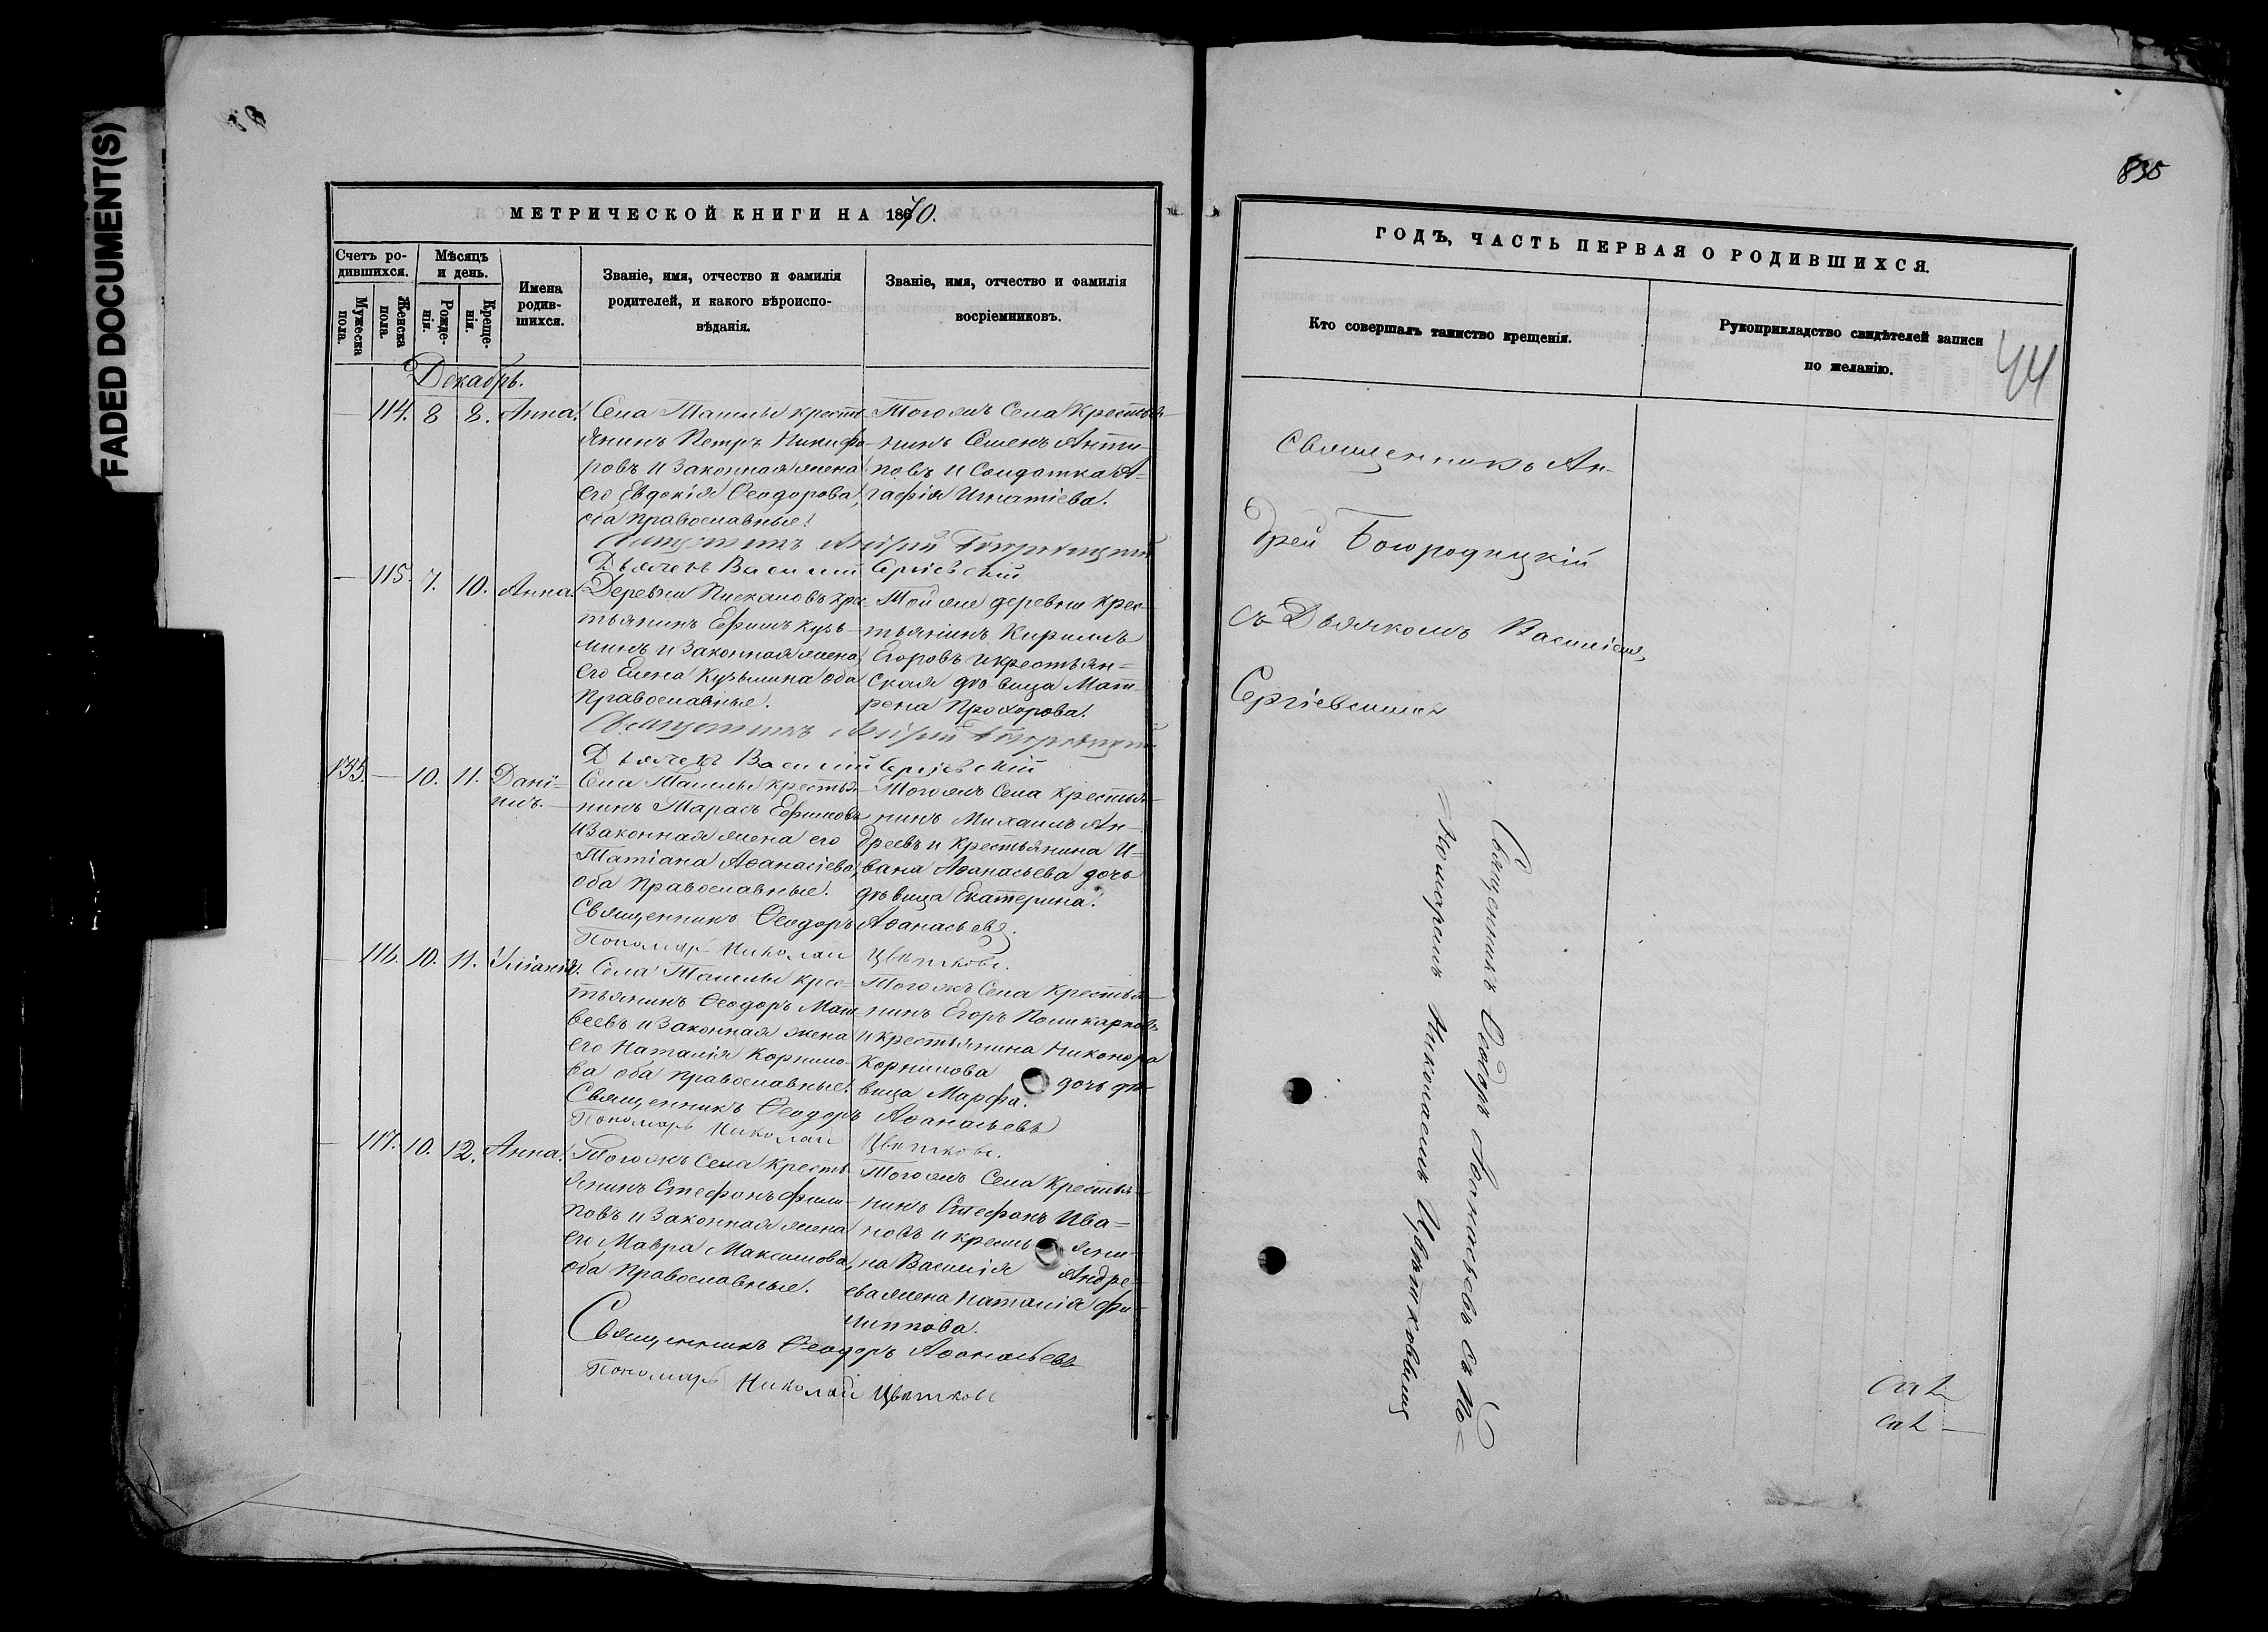 FADED DOCUMENT(S)
835
МЕТРИЧЕСКОЙ КНИГИ НА 1870.
Счетъ ро-
дившихся.
Мужеска
пола.
Женска
пола.
Мѣсяцъ
и день.
Рожде-
нія.
Креще-
нія.
Имена
родив-
шихся.
Званіе, имя, отчество и фамилія
родителей, и какого вѣроиспо-
вѣданія.
Званіе, имя, отчество и фамилія
воспріемниковъ.
Декабрь.
— 114. 8 8. Анна.
Села Ташлы крестъ-
янинъ Петръ Никифо-
ровъ и Законная жена
его Евдокія Ѳеодорова,
оба православные.
Тогожъ Села Крестья-
нинъ Семенъ Анти-
повъ и Солдатка А-
гафія Игнатіева.
Священникъ Андрей Богородицкій
Дьячекъ Василій Сергіевскій
— 115. 7. 10. Анна.
Деревни Пискаловъ крес-
тьянинъ Ефимъ Кузь-
минъ и Законная жена
его Елена Кузьмина оба
Православные.
Той же деревни Крес-
тьянинъ Кириллъ
Егоровъ и крестьян-
ская дѣвица Мат-
рена Прохорова.
Священникъ Андрей Богородицкій
Дьячекъ Василій Сергіевскій
133. — 10. 11. Дані-
илъ.
Села Ташлы Крестья-
нинъ Тарасъ Ефимовъ
и Законная жена его
Татіана Аѳанасіева,
оба Православные.
Тогожъ Села Крестья-
нинъ Михаилъ Ан-
дреевъ и Крестьянина И-
вана Аѳанасьева дочь
дѣвица Екатерина.
Священникъ Ѳеодоръ Аѳанасьевъ.
Пономарь Николай Цвѣтковъ.
— 116. 10. 11. Уліанія.
Села Ташлы крес-
тьянинъ Ѳеодоръ Мат-
веевъ и Законная жена
его Наталія Корнило-
ва оба православные.
Тогожъ Села Крестья-
нинъ Егоръ Поликарповъ
и крестьянина Никонора
Корнилова дочь дѣ-
вица Марфа.
Священникъ Ѳеодоръ Аѳанасьевъ
Пономарь Николай Цвѣтковъ.
— 117. 10. 12. Анна.
Тогожъ Села Кресть-
янинъ Стефанъ Фили-
повъ и Законная жена
его Мавра Максимова,
оба Православные.
Тогожъ Села Крестья-
нинъ Стефанъ Ива-
новъ и кресть яни-
на Василія Андре-
ева жена Наталія Фи-
липпова.
Священникъ Ѳеодоръ Аѳанасьевъ
Пономарь Николай Цвѣтковъ
ГОДЪ, ЧАСТЬ ПЕРВАЯ О РОДИВШИХСЯ.
Кто совершалъ таинство крещенія.
Рукоприкладство свидѣтелей записи
по желанію.
44
Священникъ Ан-
дрей Богородицкій
съ Дьячкомъ Василіемъ
Сергіевскимъ
Священникъ Ѳеодоръ Аѳанасьевъ съ По-
номаремъ Николаемъ Цвѣтковымъ